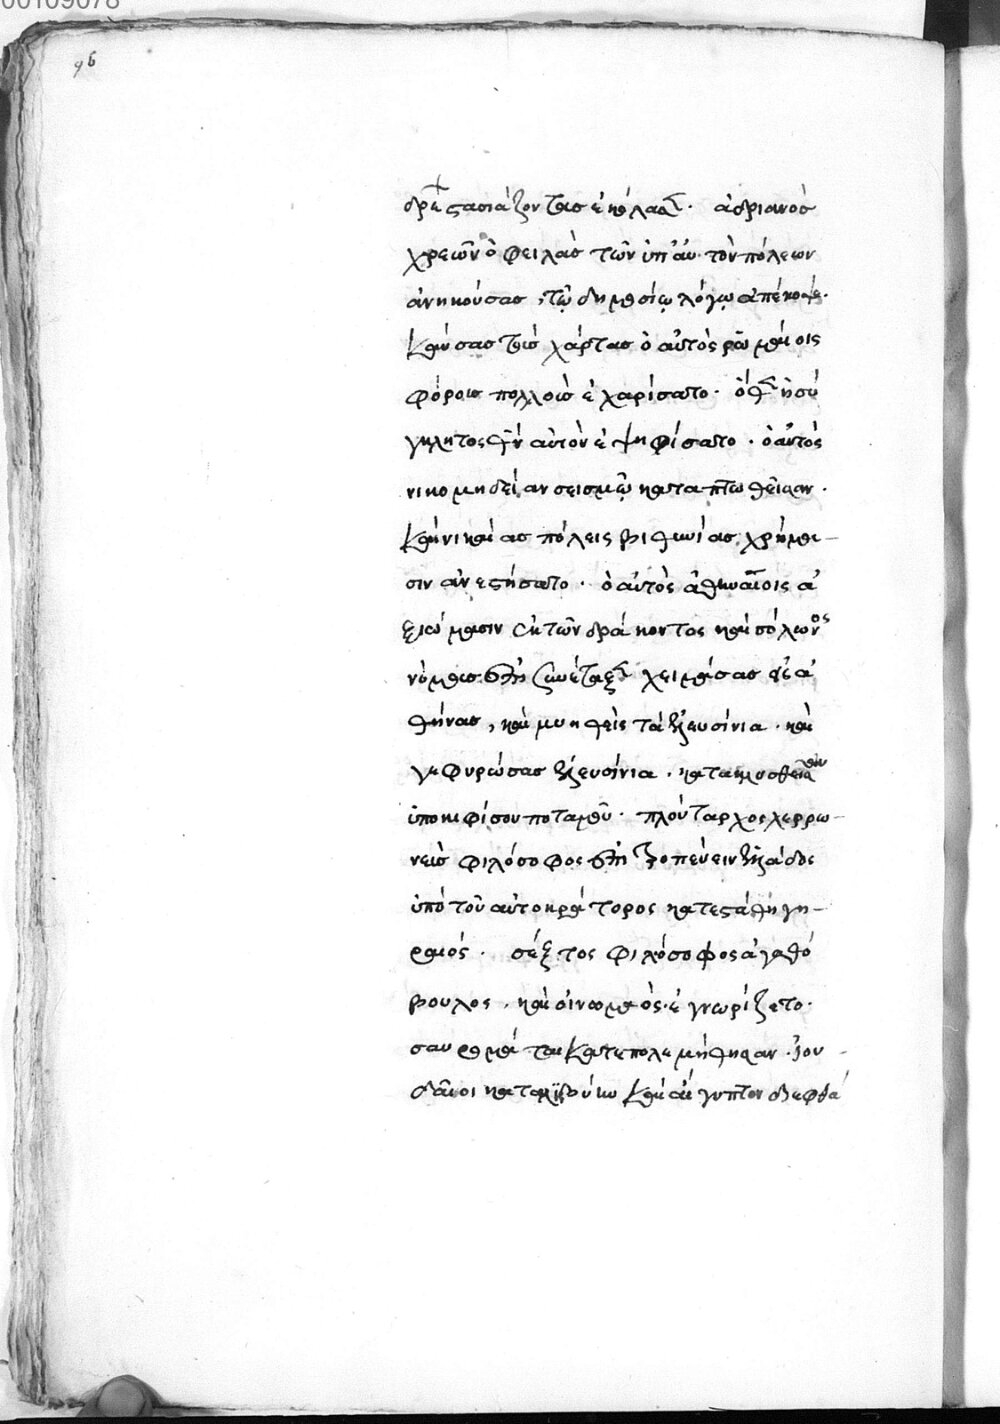 00109078
96
δρεῖς στασιάζοντας ἐκόλασεν. ἀδριανὸς
χρεῶν ὀφειλὰς τῶν ὑπ' αὐτὸν πόλεων
ἀνηκούσας τῷ δημοσίῳ λόγῳ ἀπέκοψε.
καύσας τοὺς χάρτας ὁ αὐτὸς ῥωμαίοις
φόρους πολλοὺς ἐχαρίσατο. ἡ σύ
γκλητος αὐτὸν ἐψηφίσατο. ὁ αὐτὸς
νικομηδείαν σεισμῷ καταπτωθεῖσαν.
καὶ νικαίας πόλεις βιθυνίας χρήμα-
σιν ἀνεστήσατο. ὁ αὐτὸς ἀθηναίοις ἀ
ξιώμασιν ἐκ τῶν δράκοντος καὶ σόλωνος
νόμους συνέταξεν χειμάσας εἰς ἀ
θήνας, καὶ μυηθεὶς τὰ ἐλευσίνια. καὶ
γεφυρώσας ἐλευσίνια. κατακλυσθεῖσαν
ὑπὸ κιφίσου ποταμοῦ. πλούταρχος χερρω-
νεὺς φιλόσοφος ἐπιτροπεύειν ἑλλάδος
ὑπὸ τοῦ αὐτοκράτορος κατεστάθη γη-
ραιός. σέξτος φιλόσοφος ἀγαθό
βουλος. καὶ οἰνόμαος ἐγνωρίζετο.
σαυρομάται κατεπολεμήθησαν. ἰου-
δαῖοι κατὰ λιβύην καὶ αἴγυπτον διεφθά